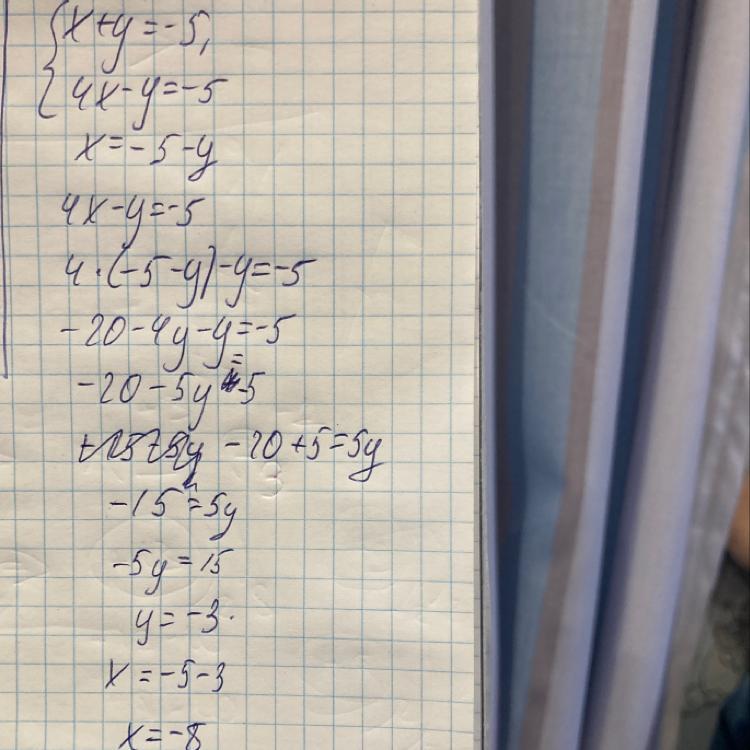 x+y=-5,
4x-y=-5
x=-5-y
4x-y=-5
4·(-5-y)-y=-5
-20-4y-y=-5
-20-5y=-5
-20+5=5y
-15=5y
-5y=15
y=-3.
x=-5-3
x=-8